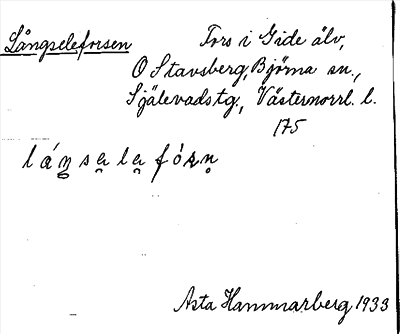 Långseleforsen
Fors i Gide älv,
O Stavsberg, Björna sn.,
Själevads tg., Västernorrl. l.
175
láŋsa̤la̤fórn̥
Asta Hammarberg 1933